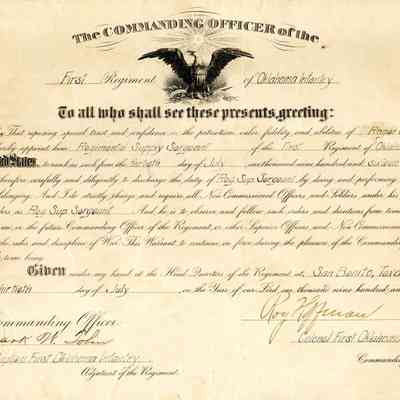 The COMMANDING OFFICER of the
First Regiment of Oklahoma Infantry
To all who shall see these presents, greeting:
That reposing special trust and confidence in the patriotism, valor, fidelity and abilities of
appoint him Regimental Supply Sergeant of the First Regiment of
States, to rank as such from the thirtieth day of July one thousand nine hundred and
therefore carefully and diligently to discharge the duty of Reg Sup Sergeant by doing and performing
belonging. And I do strictly charge and require all Non Commissioned Officers and Soldiers under his
as Reg Sup Sergeant And he is to observe and follow such orders and directions from time
or the future Commanding Officer of the Regiment, or other Superior Officers and Non Commissioned
the rules and discipline of War. This Warrant to continue in force during the pleasure of the
time being.
Given under my hand at the Head Quarters of the Regiment at San Benito,
day of July in the Year of our Lord one thousand nine hundred and
Commanding Officer
Roy Hoffman
Colonel First
First Oklahoma Infantry
Adjutant of the Regiment.